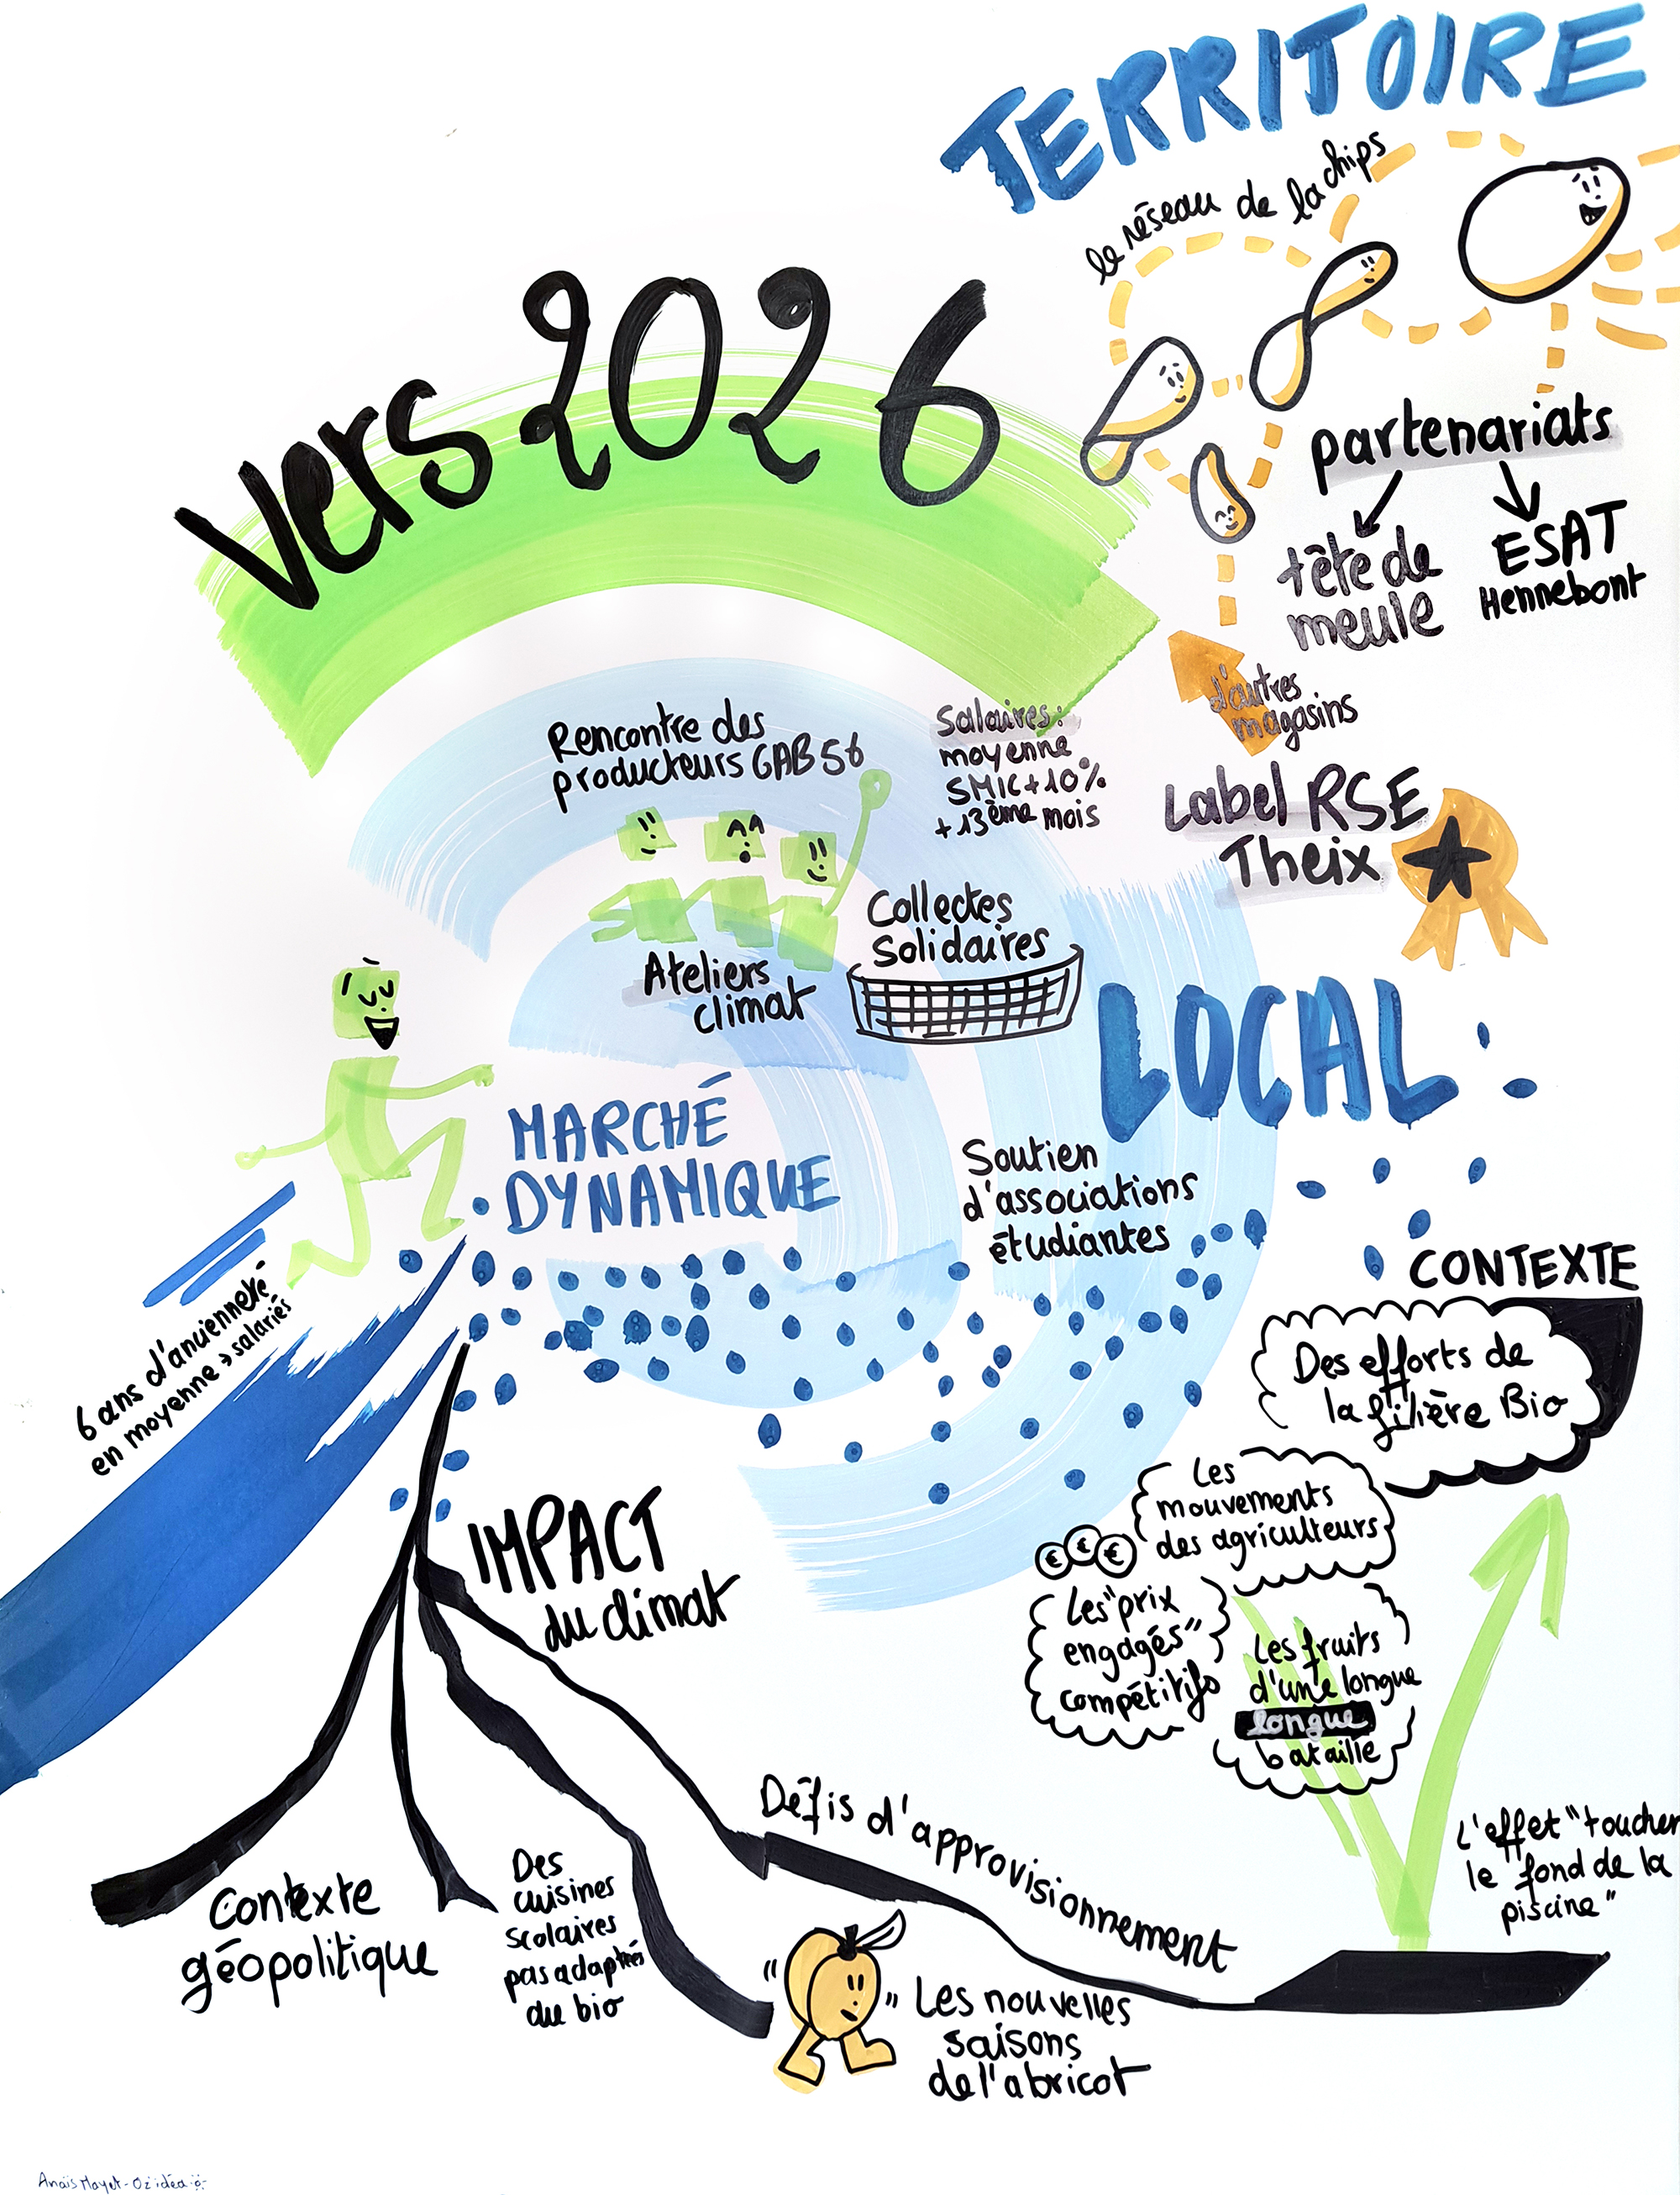 TERRITOIRE
le réseau de la chips
Vers 2026
partenariats
tête de
meule
ESAT
Hennebont
d'autres
magasins
Rencontre des
producteurs GAB 56
Salaires :
moyenne
SMIC + 10%
+ 13ème mois
Label RSE
Theix
Collectes
Solidaires
Ateliers
climat
LOCAL
MARCHÉ
DYNAMIQUE
Soutien
d'associations
étudiantes
6 ans d'ancienneté
en moyenne > salariés
CONTEXTE
Des efforts de
la filière Bio
Les
mouvements
des agriculteurs
€ € €
Les "prix
engagés"
compétitifs
Les fruits
d'une longue
longue
bataille
IMPACT
du climat
Défis d'approvisionnement
L'effet "toucher
le fond de la
piscine"
Contexte
géopolitique
Des
cuisines
scolaires
pas adaptées
au bio
Les nouvelles
saisons
de l'abricot
Anaïs Mayet - Oz'idéa